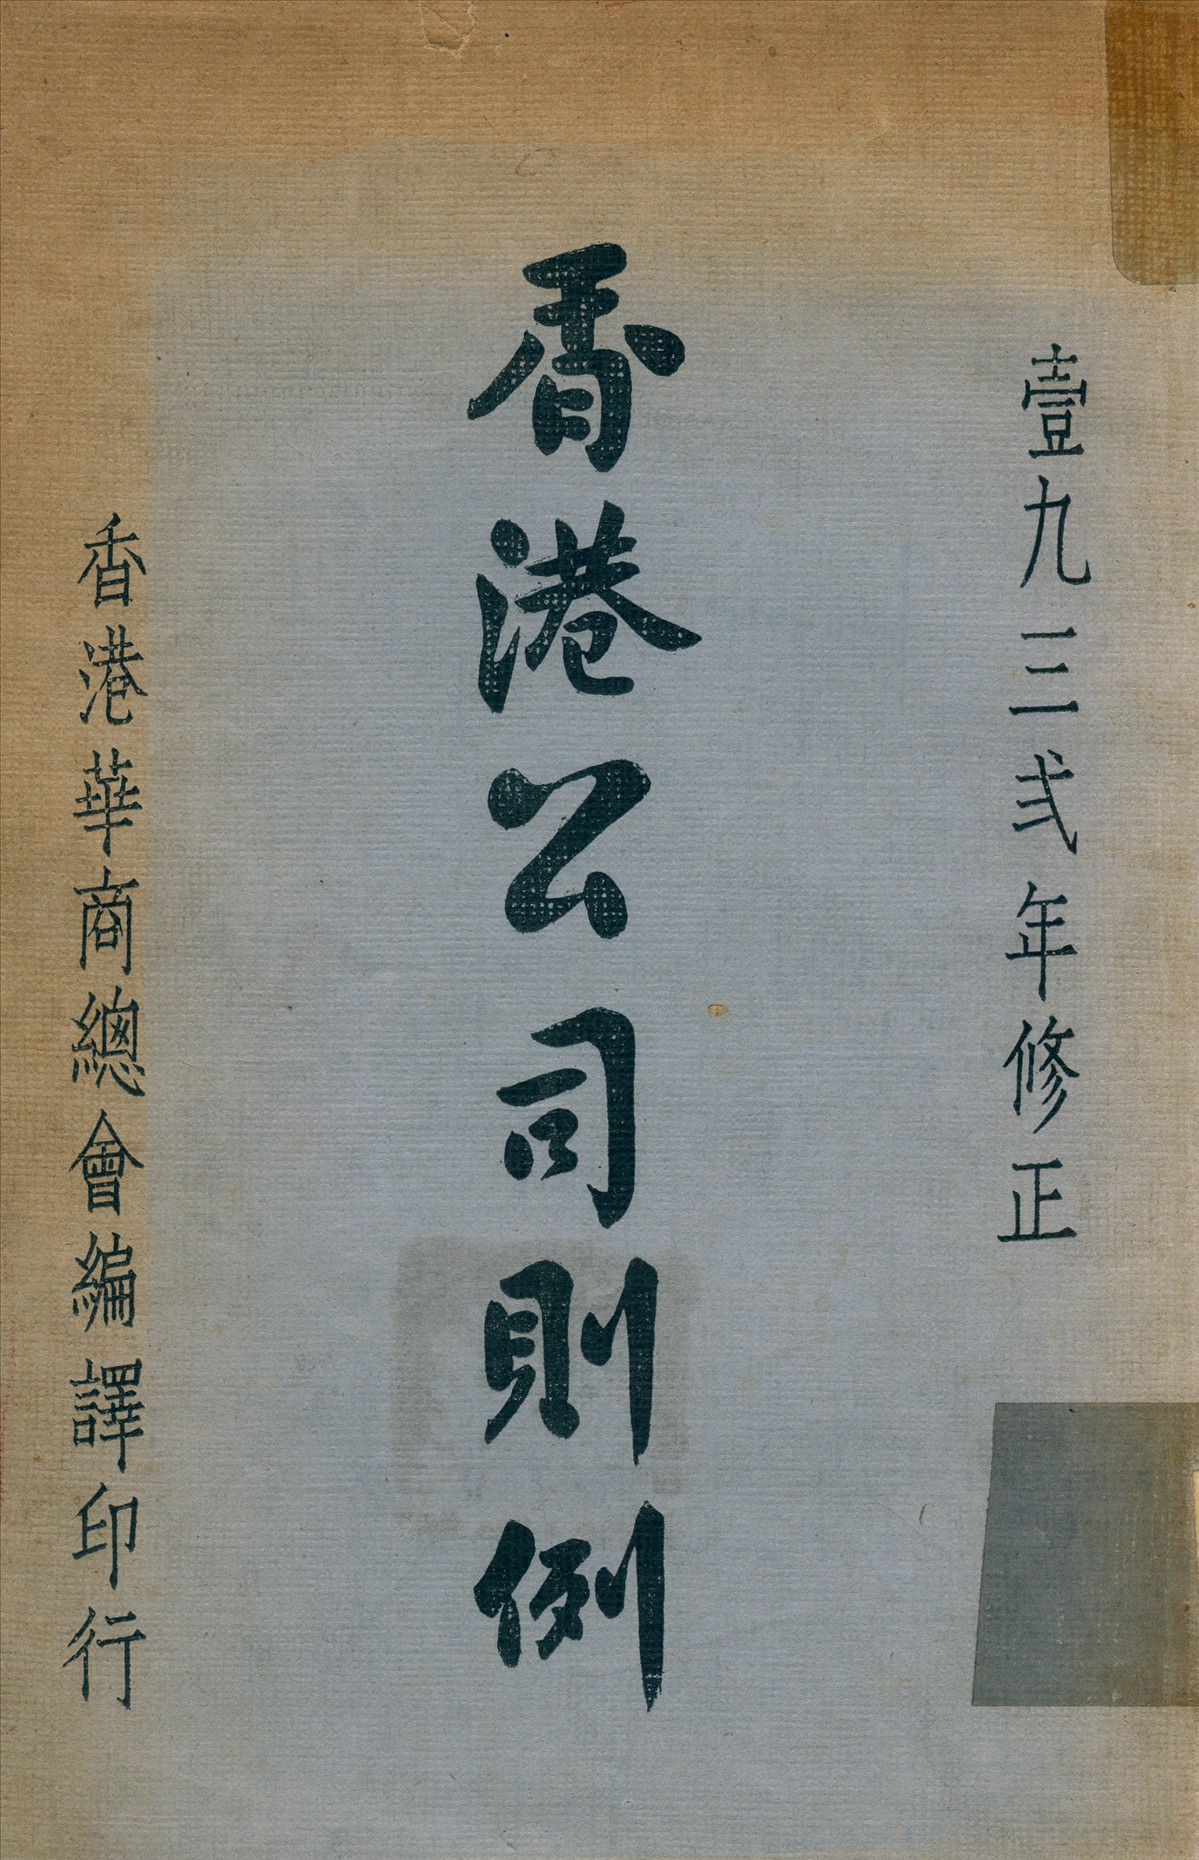 壹九三弍年修正
香港公司則例
香港華商總會編譯印行